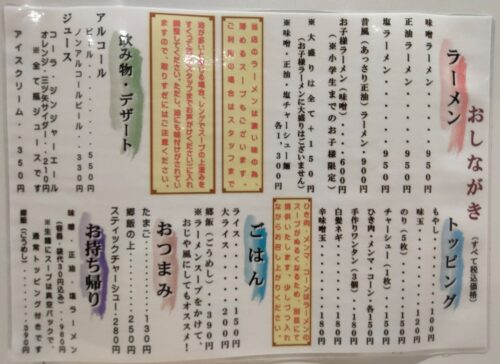 おしながき
(すべて税込価格)
ラーメン
味噌 ラーメン・・950円
正油 ラーメン・・950円
塩 ラーメン・・950円
昔風(あっさり正油)ラーメン・900円
お子様ラーメン(味噌)・・・600円
(※小学生までのお子様限定)
※大盛りは全て+150円
(お子様ラーメンに大盛りはございません)
※味噌・正油・塩チャーシュー麺
各1,300円
当店のラーメンは濃い味の為、
薄めるスープもございます。
ご利用の場合はスタッフまで
油が多いと感じる場合、レンゲでスープの上澄みを
すくって頂きスタッフまでお声がけください(に入れ
調整してください。ただし、油にも味付けがされてい
ますので、取りすぎにはご注意ください。
飲み物・デザート
アルコール
ビール・・・・・550円
ノンアルコールビール・・330円
ジュース
コーラ・ジンジャーエール
オレンジ・三ツ矢サイダー・・210円
※全て瓶ジュースです
アイスクリーム・・350円
トッピング
もやし・・・・100円
味玉・・・・・120円
のり(5枚)・・・150円
チャーシュー(1枚)・・150円
ひき肉・メンマ・コーン・各150円
手作りワンタン(3個)・・180円
白髪ネギ・・・・180円
辛味噌玉・・・・180円
ひき肉・メンマ・コーンはラーメンの
スープがぬるくなるため、別皿にて
提供いたします。少しづつ入れ
ながらお召し上がりください。
ごはん
ライス・・・・・150円
大ライス・・・・200円
郷飯(ごうめし)・・390円
※ラーメンスープをかけて、
おじや風にしてもオススメ!
おつまみ
たまご・・・・・130円
郷飯の上・・・・250円
スティックチャーシュー・280円
お持ち帰り
味噌 正油 塩ラーメン
(容器・袋代30円込み)・・980円
※生麺にスープは真空パックで、
通常トッピング付きです
郷飯(ごうめし)・・390円